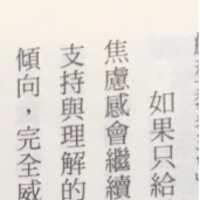 如果只給
焦慮感會繼續
支持與理解的
傾向，完全威